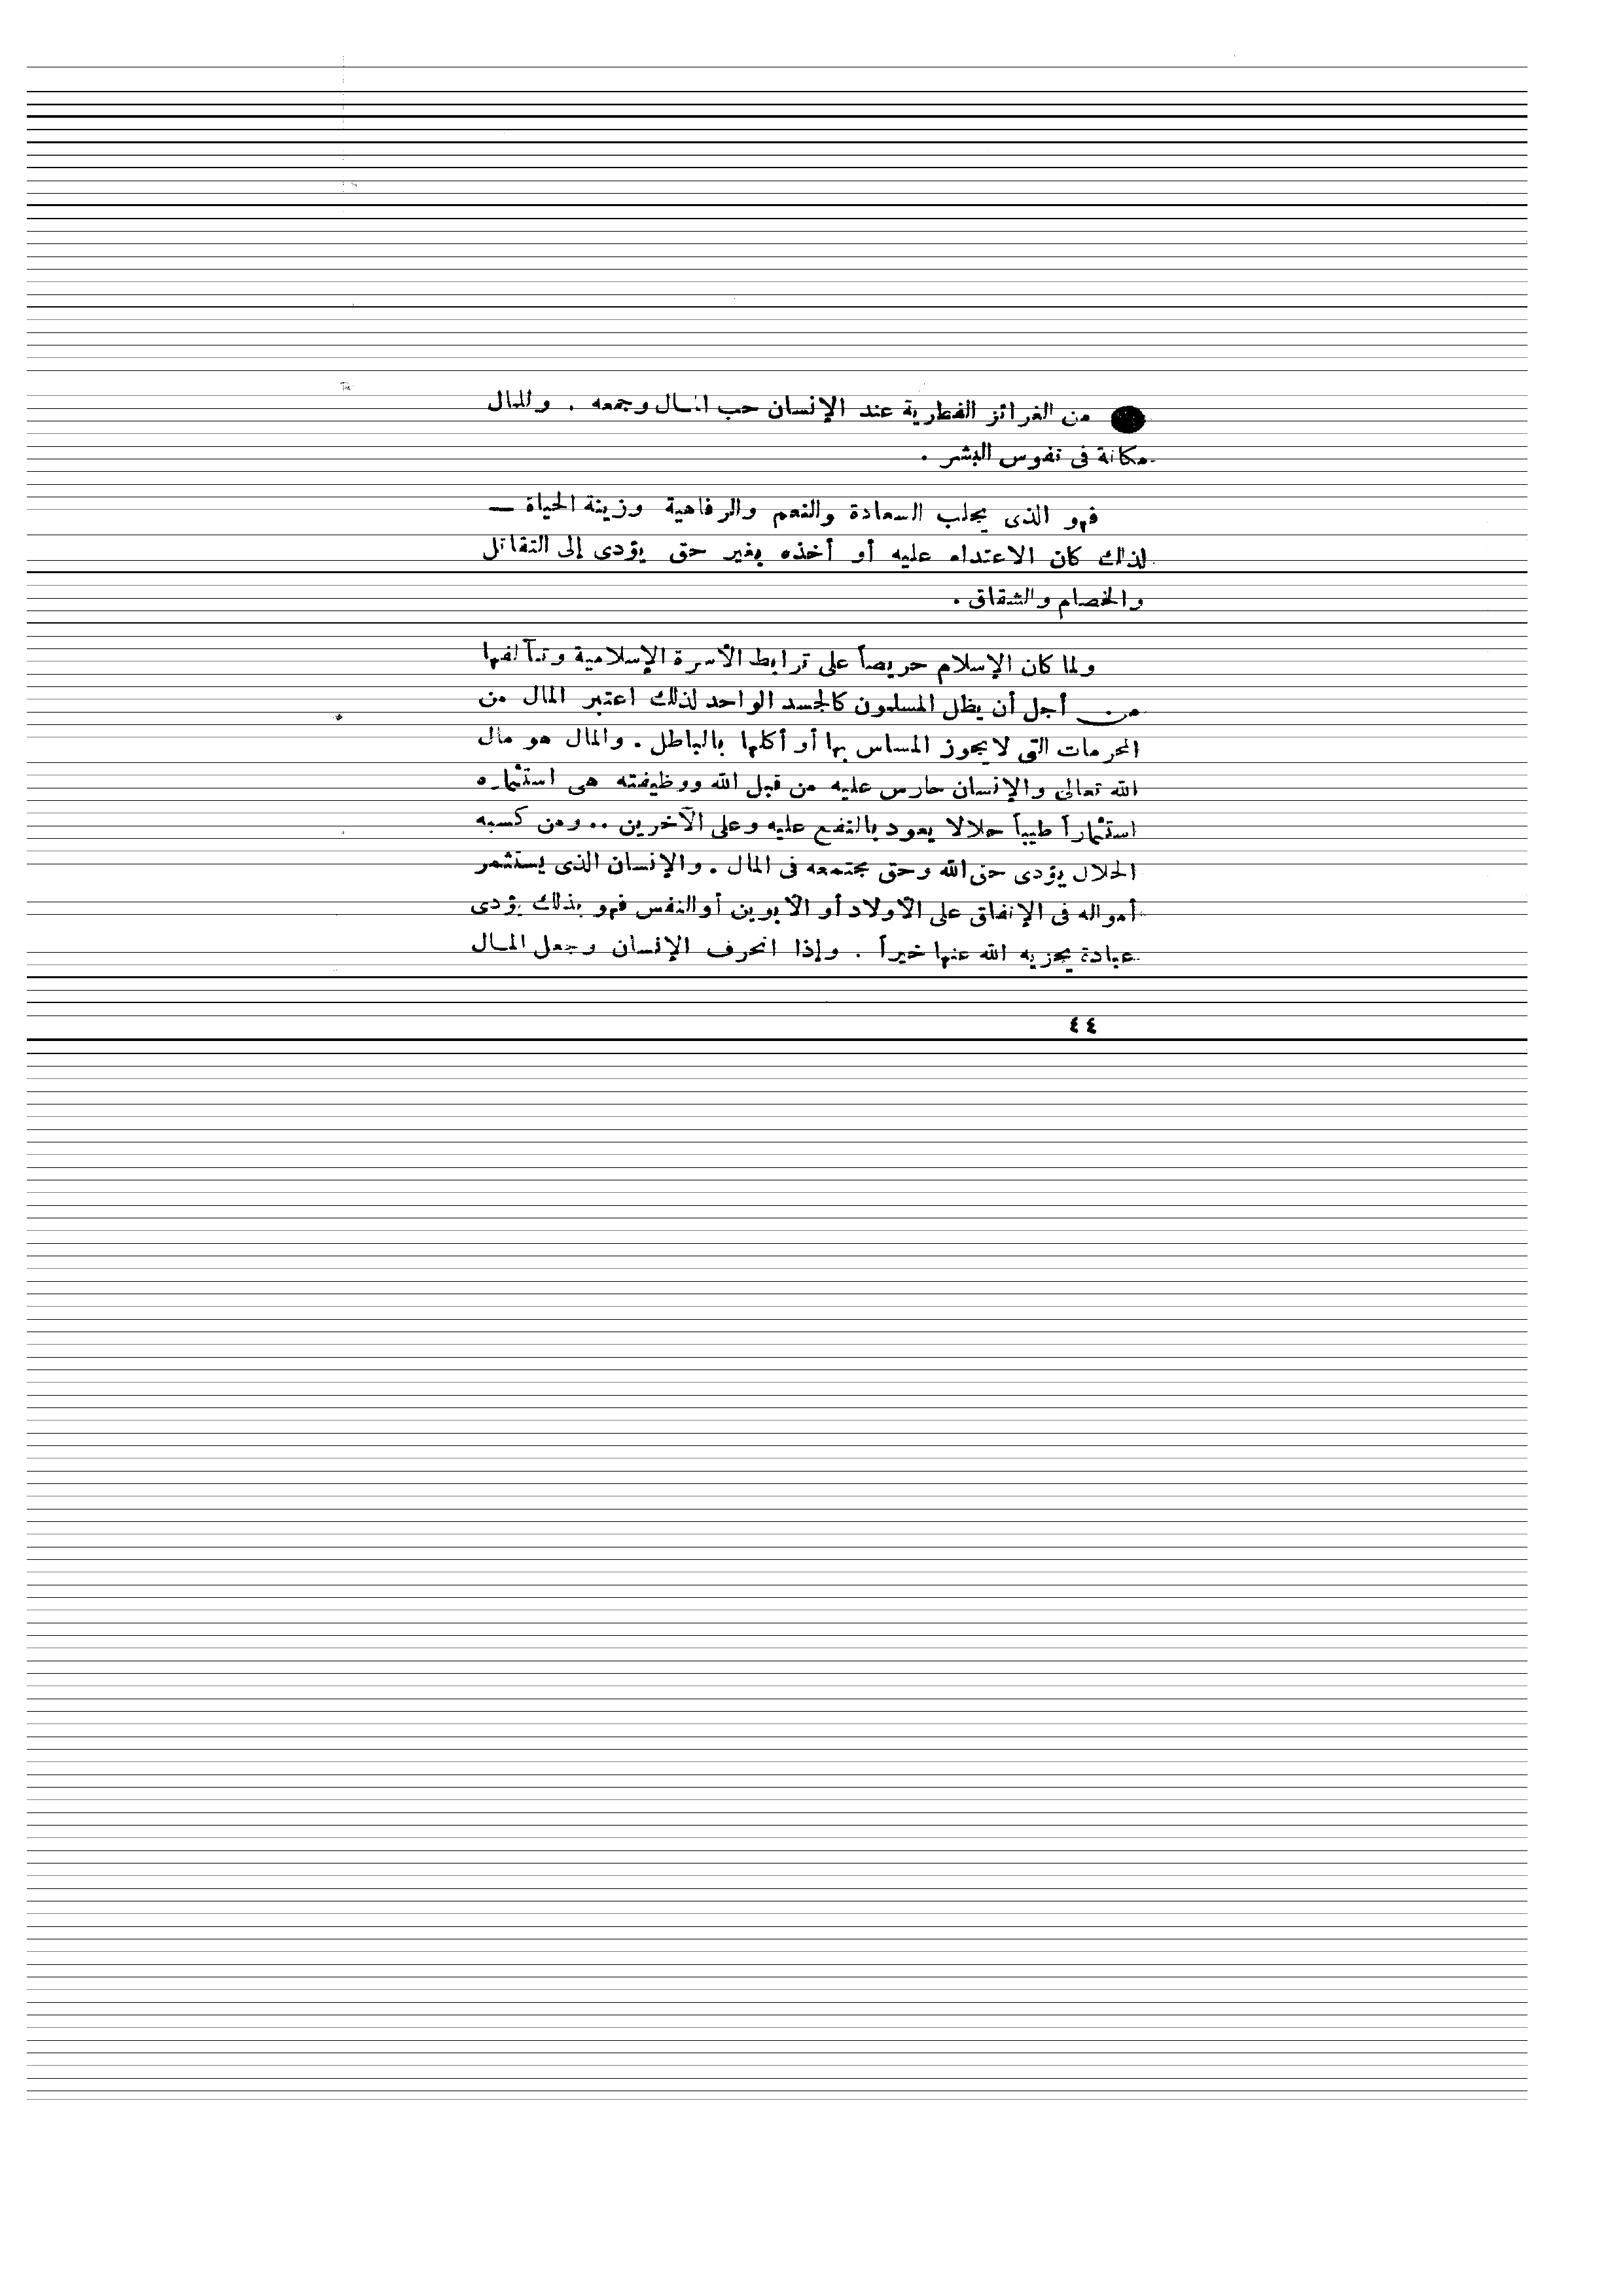 من الغرائز الفطرية عند الإنسان حب المال وجمعه . وللمال
مكانة فى نفوس البشر .
فهو الذى يجلب السعادة والنعم والرفاهية وزينة الحياة —
لذلك كان الاعتداء عليه أو أخذه بغير حق يؤدى إلى التقاتل
والخصام والشقاق .
ولما كان الإسلام حريصاً على ترابط الأسرة الإسلامية وتآلفها
من أجل أن يظل المسلمون كالجسد الواحد لذلك اعتبر المال من
المحرمات التى لا يجوز المساس بها أو أكلها بالباطل . والمال هو مال
الله تعالى والإنسان حارس عليه من قبل الله ووظيفته هى استثماره
استثماراً طيباً حلالا يعود بالنفع عليه وعلى الآخرين .. ومن كسبه
الحلال يؤدى حق الله وحق مجتمعه فى المال . والإنسان الذى يستثمر
أمواله فى الإنفاق على الأولاد أو الأبوين أو النفس فهو بذلك يؤدى
عبادة يجزيه الله عنها خيراً . وإذا انحرف الإنسان وجعل المال
٤٤